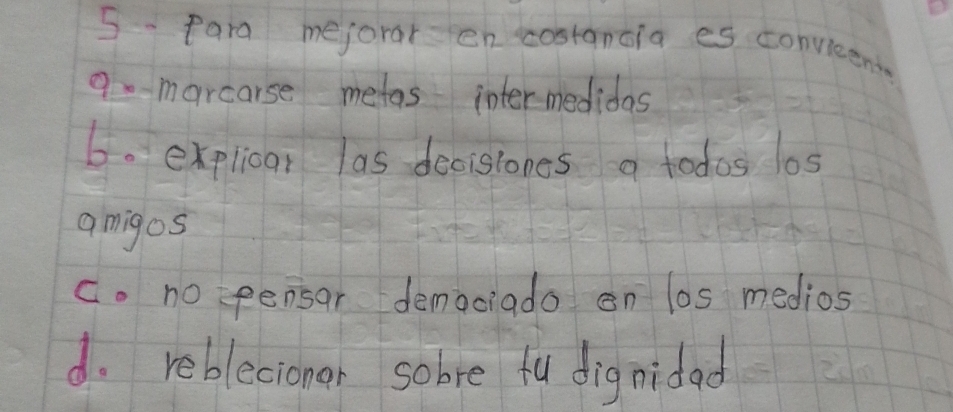 5- Para mejorar en costancia es convieente
a. marcarse metas intermedidas
b. explicar las decisiones a todos los
amigos
c. no pensar demaciado en los medios
d. reblecionar sobre tu dignidad